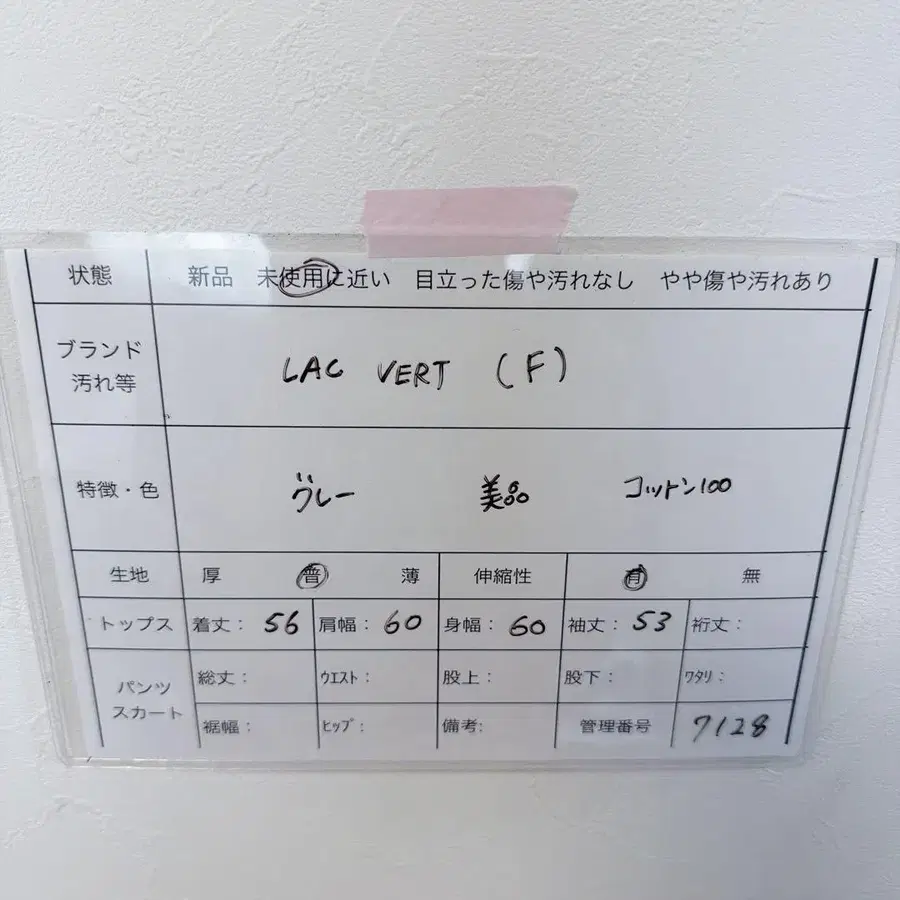 状態 新品 未使用に近い 目立った傷や汚れなし やや傷や汚れあり
ブランド
汚れ等
LAC VERT (F)
特徴・色 グレー 美品 コットン100
生地 厚 普 薄 伸縮性 有 無
トップス 着丈: 56 肩幅: 60 身幅: 60 袖丈: 53 裄丈:
パンツ
スカート
総丈: ｳｴｽﾄ: 股上: 股下: ﾜﾀﾘ:
裾幅: ﾋｯﾌﾟ: 備考: 管理番号 7128